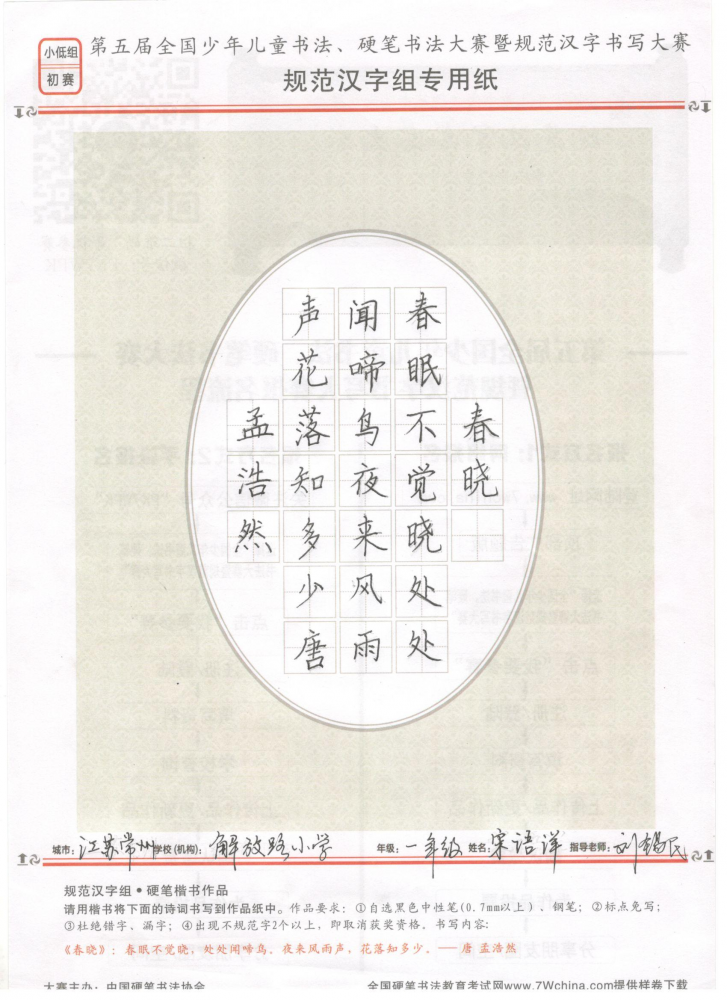 小低组
初赛
第五届全国少年儿童书法、硬笔书法大赛暨规范汉字书写大赛
规范汉字组专用纸
春晓
春眠不觉晓处处
闻啼鸟夜来风雨
声花落知多少唐
孟浩然
城市：江苏常州 学校(机构)：解放路小学 年级：一年级 姓名：宋语洋 指导老师：刘锡民
规范汉字组•硬笔楷书作品
请用楷书将下面的诗词书写到作品纸中。作品要求：①自选黑色中性笔(0.7mm以上)、钢笔；②标点免写；
③杜绝错字、漏字；④出现不规范字2个以上，即取消获奖资格。书写内容：
《春晓》：春眠不觉晓，处处闻啼鸟。夜来风雨声，花落知多少。——唐 孟浩然
大赛主办：中国硬笔书法协会 全国硬笔书法教育考试网www.7Wchina.com提供样卷下载